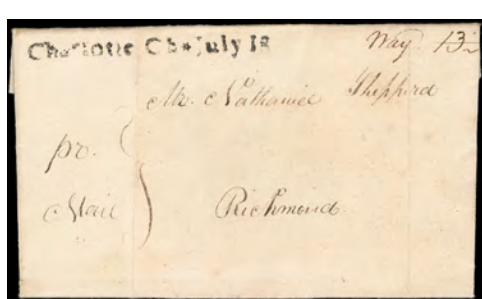 Charlotte C h * July 18 Way 13½
Mr. Nathaniel Sheppard
pr.
Mail Richmond